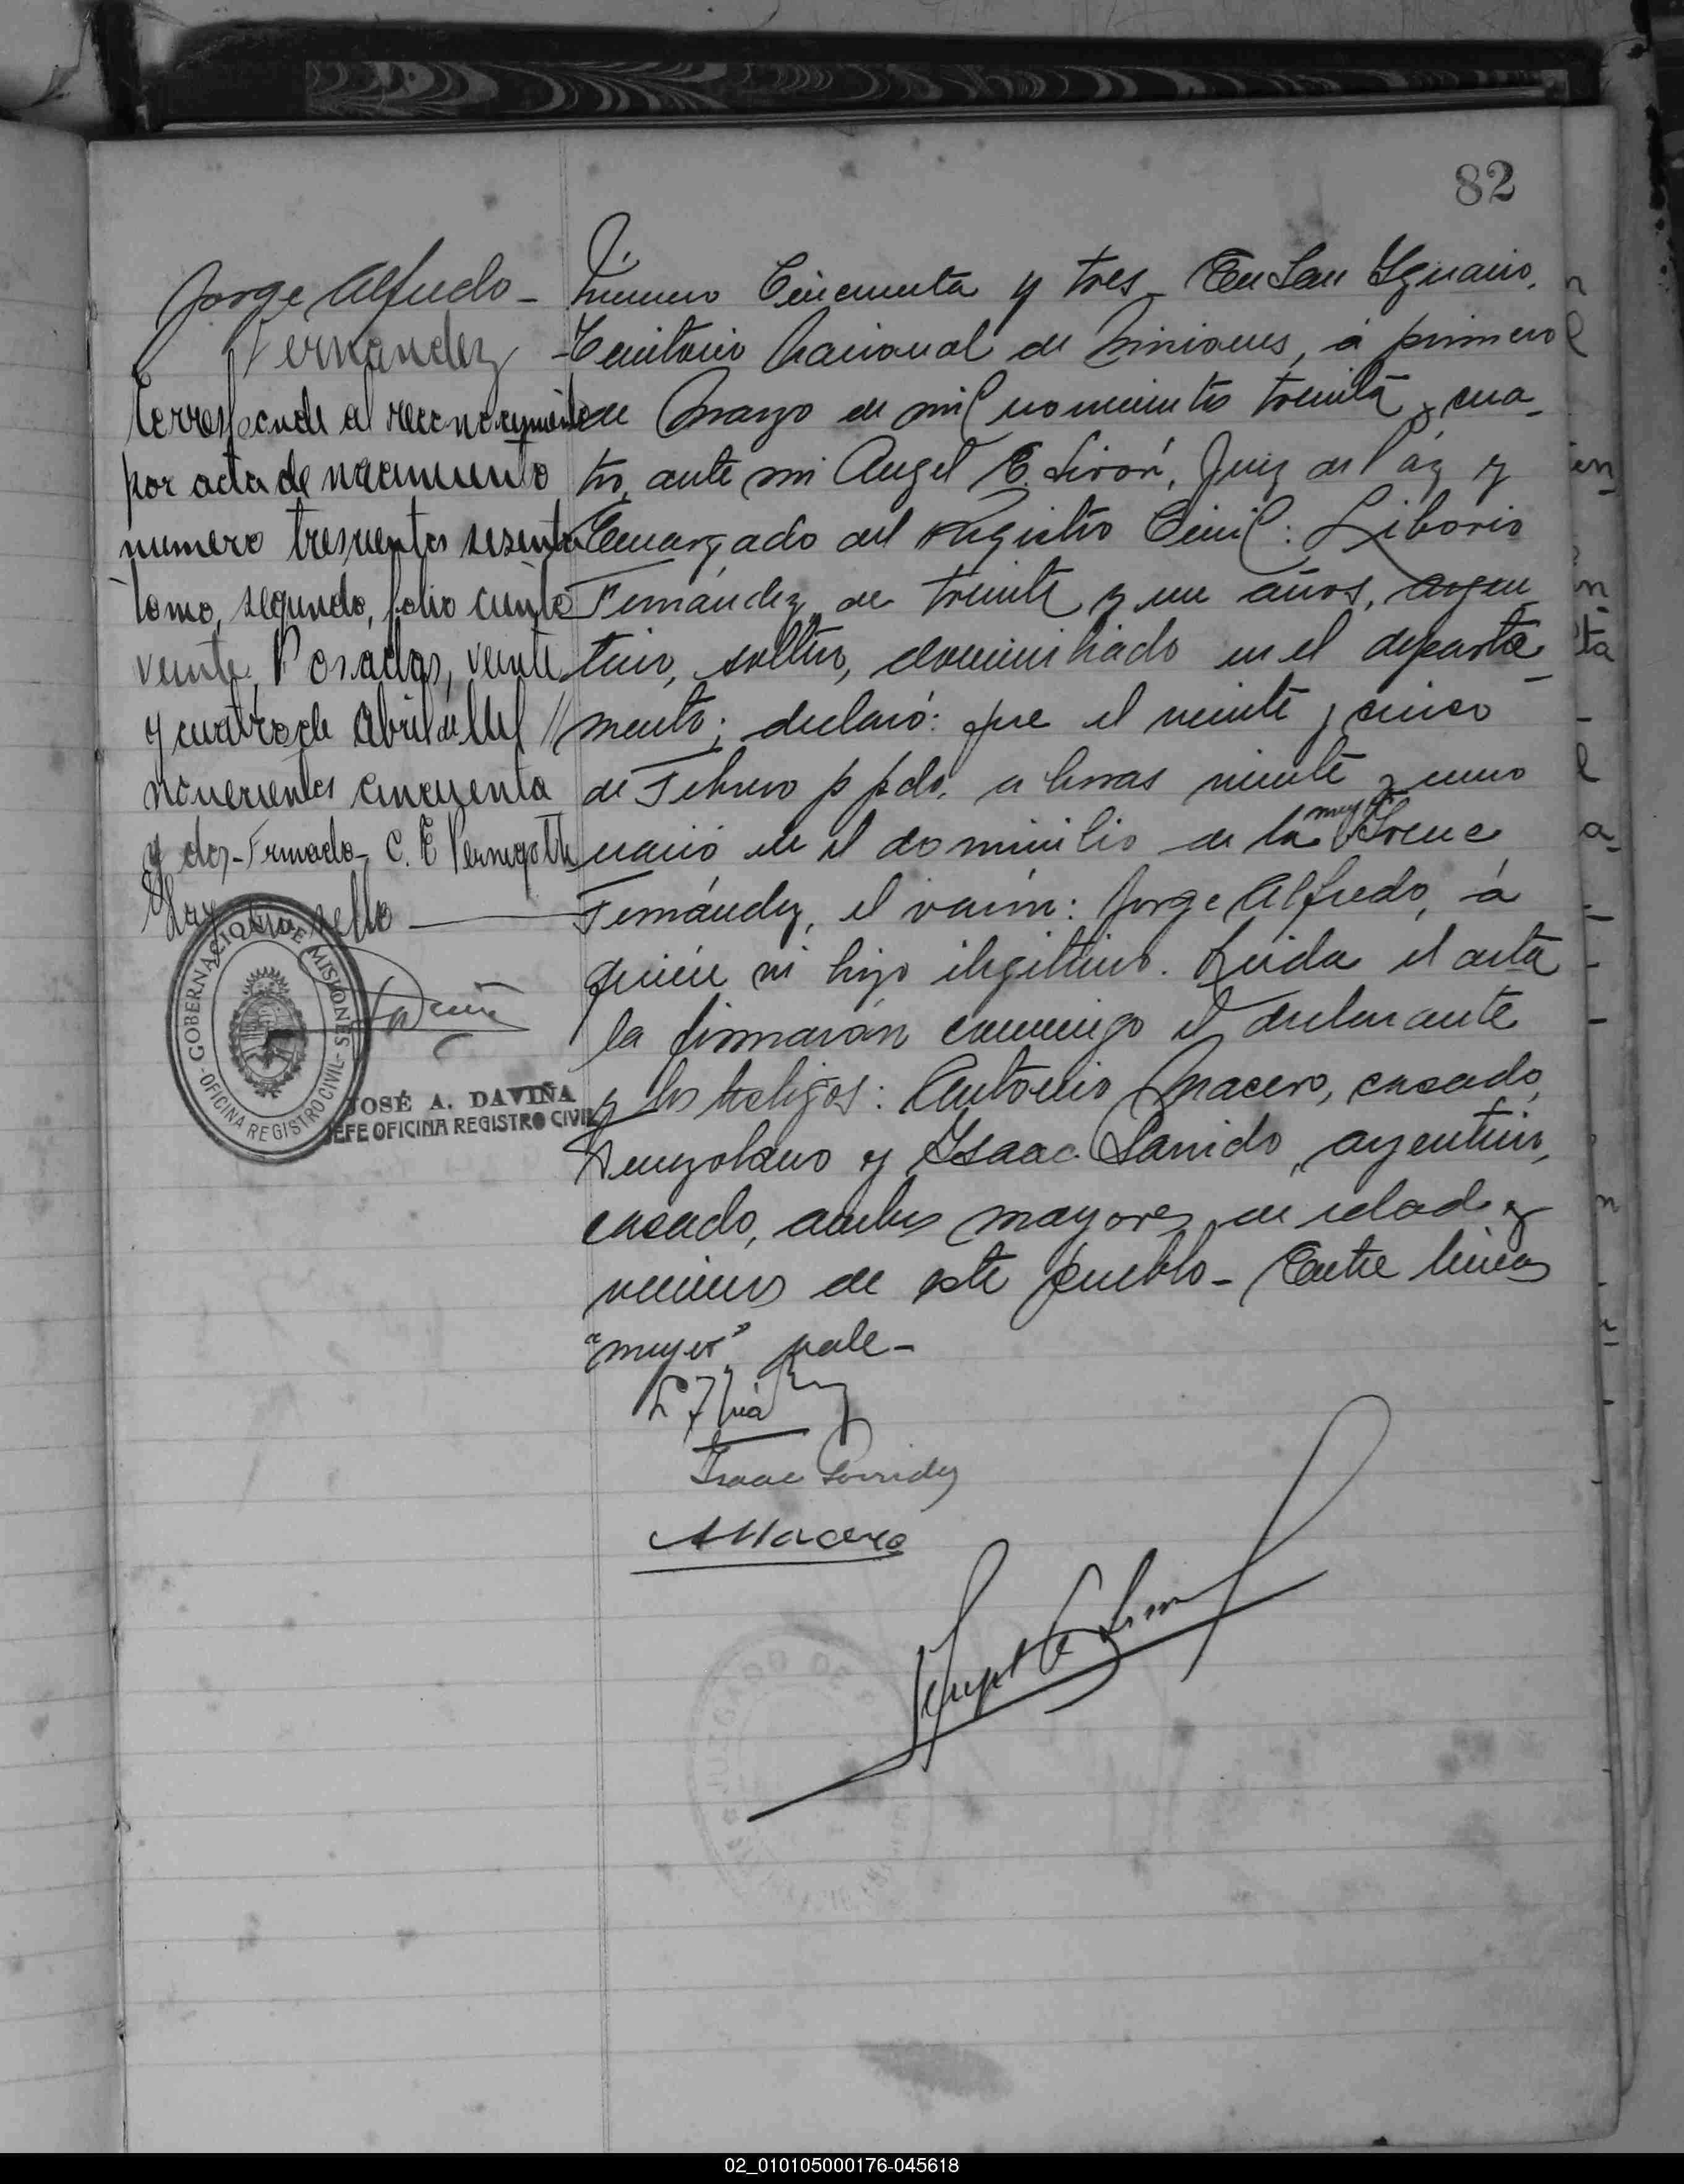 82
Jorge Alfredo -
Fernandez
Corresponde al reconocimiento
por acta de nacimiento
numero trescientos sesenta
tomo, segundo, folio ciento
veinte, Posadas, veinte
y cuatro de Abril de Mil //
novecientos cincuenta
y dos - Firmado - C. E.
Hay un sello
GOBERNACION DE MISIONES
- OFICINA REGISTRO CIVIL -
JOSÉ A. DAVIÑA
JEFE OFICINA REGISTRO CIVIL
Número Cincuenta y tres - En San Ygnacio,
Territorio Nacional de Misiones, á primero
de Marzo de mil novecientos treinta y cua-
tro, ante mi Angel E. Lirón, Juez de Páz y
Encargado del Registro Civil: Liborio
Fernández de treinta y un años, argen
tino, soltero, domiciliado en el departa-
mento; declaró: que el veinte y cinco
de Febrero p pdo. a horas veinte y uno
nació en el domicilio de la mujer Irene
Fernández, el varón: Jorge Alfredo, á
quien su hijo ilegitimo. Leida el acta
la firmarán conmigo el declarante
y los testigos: Antonio Macero, casado,
Venezolano y Ysaac Garrido, argentino,
casado, ambos mayores de edad y
vecinos de este pueblo - Entre lineas
"mujer" vale -
Isaac Garrido
A Macero
JUZGADO DE